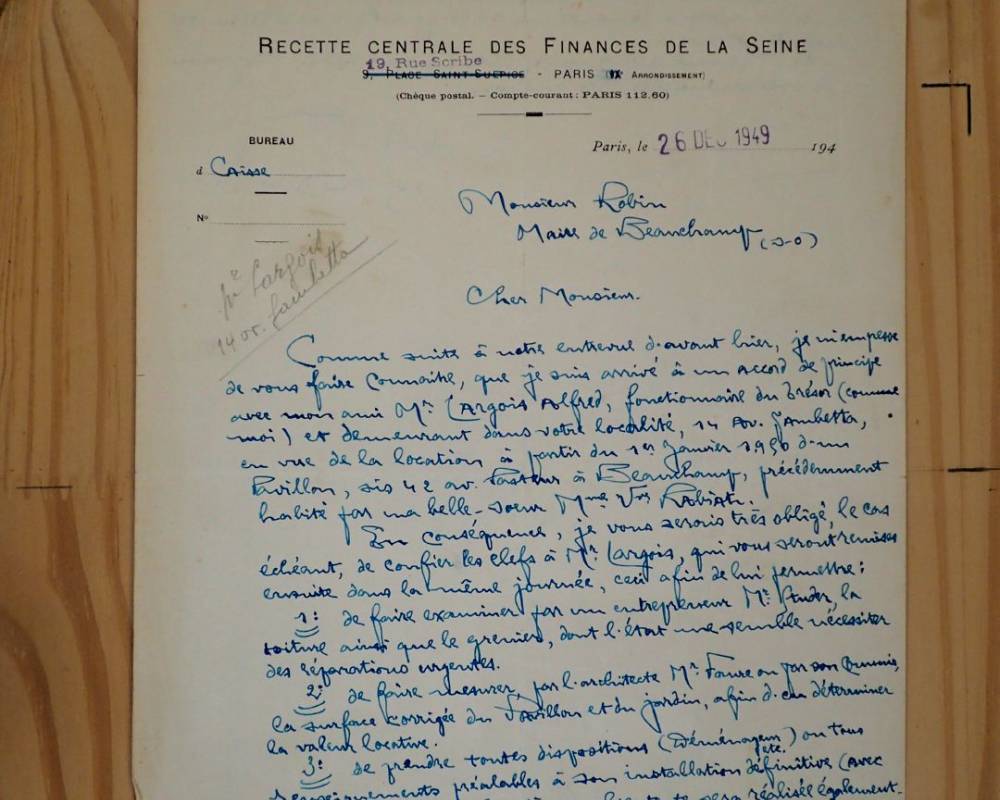 RECETTE CENTRALE DES FINANCES DE LA SEINE
19, Rue Scribe
9, PLACE SAINT-SULPICE - PARIS IX ARRONDISSEMENT)
(Chèque postal. — Compte-courant : PARIS 112.60)
BUREAU
d Caisse
N°
Paris, le 26 DEC 1949 194
Monsieur Robin
Maire de Beauchamp (S-O)
Mr Largois
14 av. Gambetta
Cher Monsieur.
Comme suite à notre entrevue d'avant hier, je m'empresse
de vous faire connaître, que je suis arrivé à un accord de principe
avec mon ami Mr Largois Alfred, fonctionnaire du Trésor (comme
moi) et demeurant dans votre localité, 14 Av. Gambetta,
en vue de la location à partir du 1er Janvier 1950 d'un
Pavillon, sis 42 av. Pasteur à Beauchamp, précédemment
habité par ma belle-soeur Mme Vve
En conséquence, je vous serais très obligé, le cas
échéant, de confier les clefs à Mr Largois, qui vous seront remises
ensuite dans la même journée, ceci afin de lui permettre :
1: de faire examiner par un entrepreneur Mr la
toiture ainsi que le grenier, dont l'état me semble nécessiter
des réparations urgentes.
2: de faire mesurer, par l'architecte Mr Faure ou par son Commis,
la surface corrigée du Pavillon et du jardin, afin d'en déterminer
la valeur locative.
3: de prendre toutes dispositions (Déménagem. etc.) ou tous
renseignements préalables à son installation définitive (avec
sera réalisée également